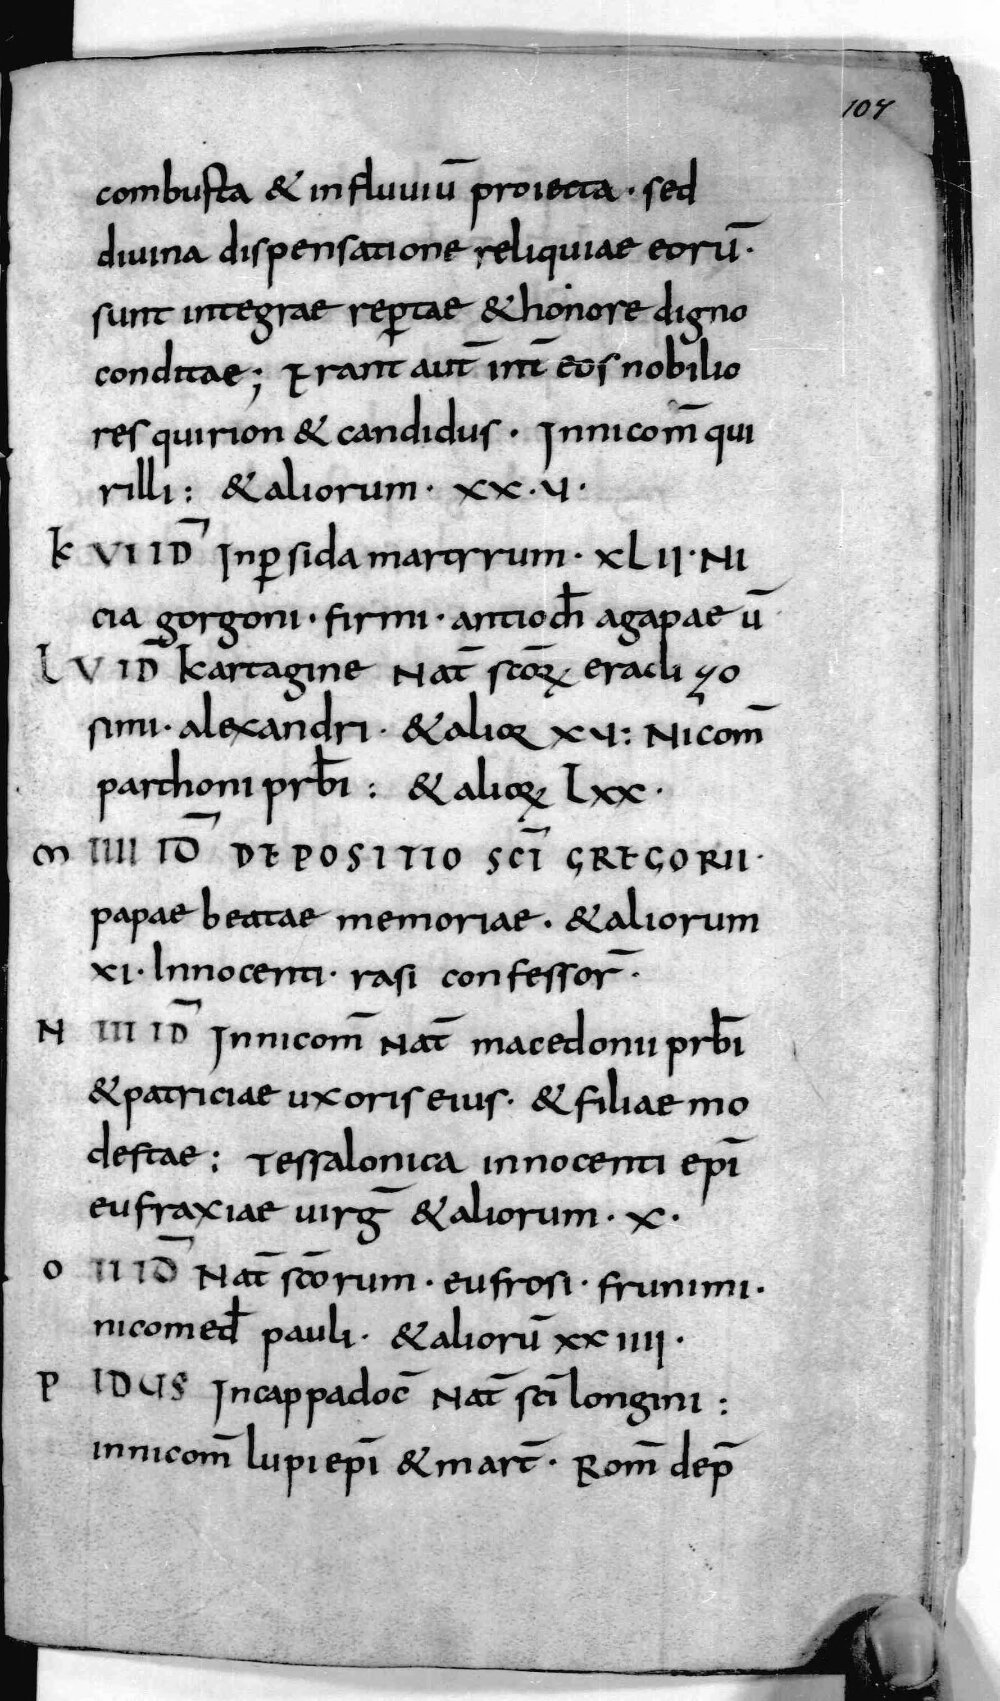 107
combusta & influuiū proiecta · sed
diuina dispensatione reliquiae eorū ·
sunt integrae reꝑtae & honore digno
conditae ; Erant aut̄ int̄ eos nobilio
res quirion & candidus · Innicom̄ qui
rilli : & aliorum · xx · u ·
k VI ID̄ Inꝑsida martyrum · XLII · Ni
cia gorgoni · firmi · antioch̄ agapae ū
l V ID̄ kartagine Nat̄ scōꝝ eracli zo
simi · alexandri · & alioꝝ xu : Nicom̄
parthoni prb̄i : & alioꝝ lxx ·
m IIII ID̄ DEPOSITIO SC̄I GREGORII ·
papae beatae memoriae · & aliorum
xi · Innocenti · rasi confessor̄ ·
N III ID̄ Innicom̄ Nat̄ macedonii prb̄i
& patriciae uxoris eius · & filiae mo
destae : Tessalonica innocenti ep̄i
eufraxiae uirḡ & aliorum · x ·
o II ID̄ Nat̄ scōrum · eufrosi · frunimi ·
nicomed̄ pauli · & aliorū xxiiii ·
P IDUS Incappadoc̄ Nat̄ sc̄i longini :
innicom̄ lupi ep̄i & mart̄ · Rom̄ dep̄